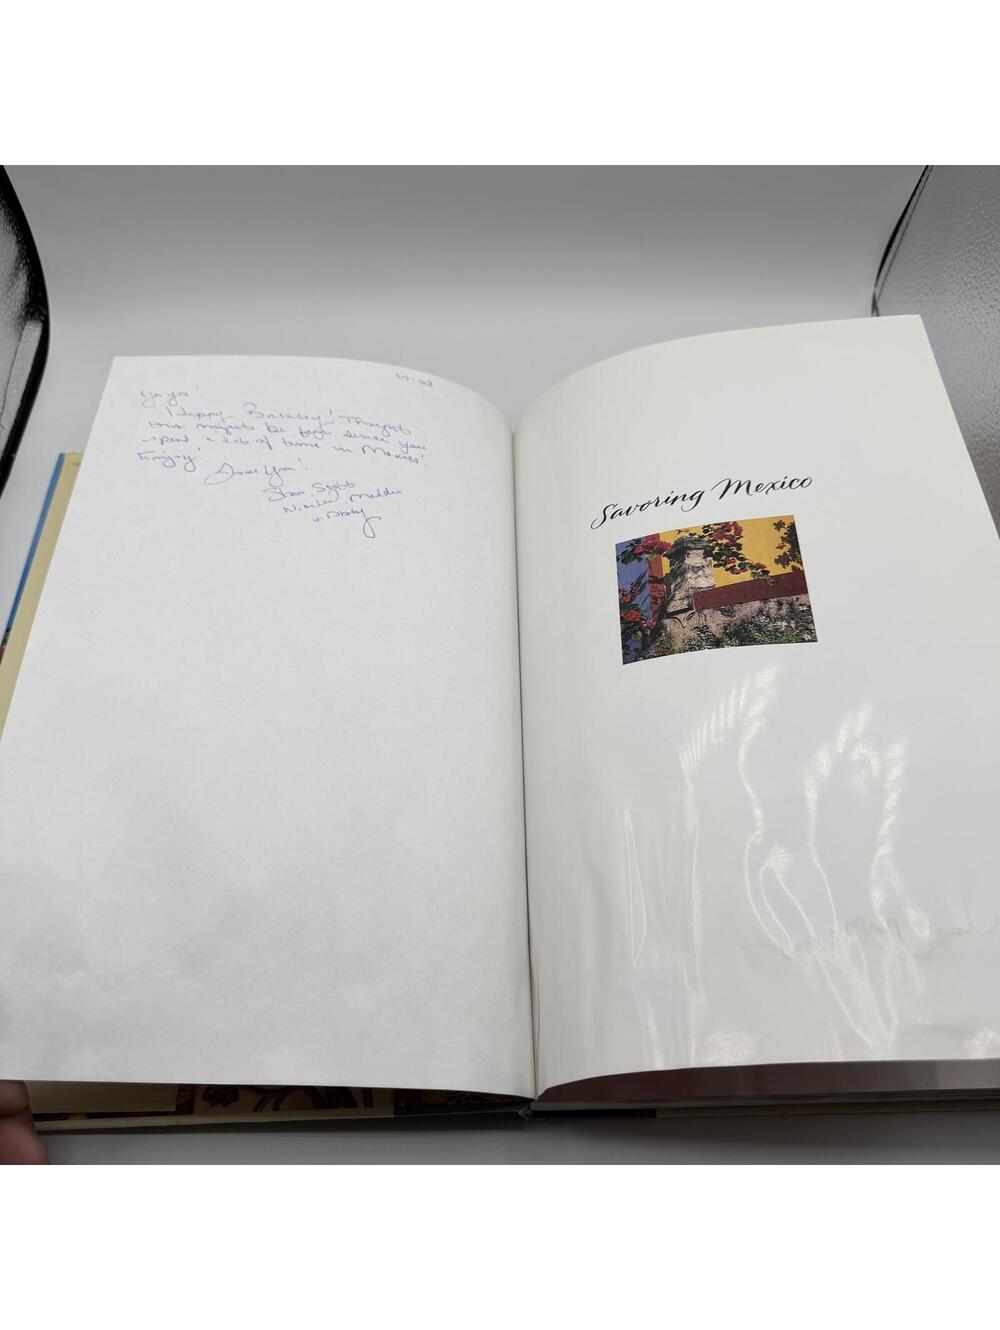 Yo yo!
Happy Birthday! Thought
this might be fun since you
spent a lot of time in Mexico!
Enjoy!
Love You!
Scott
Maddie
+ Abby
Savoring Mexico